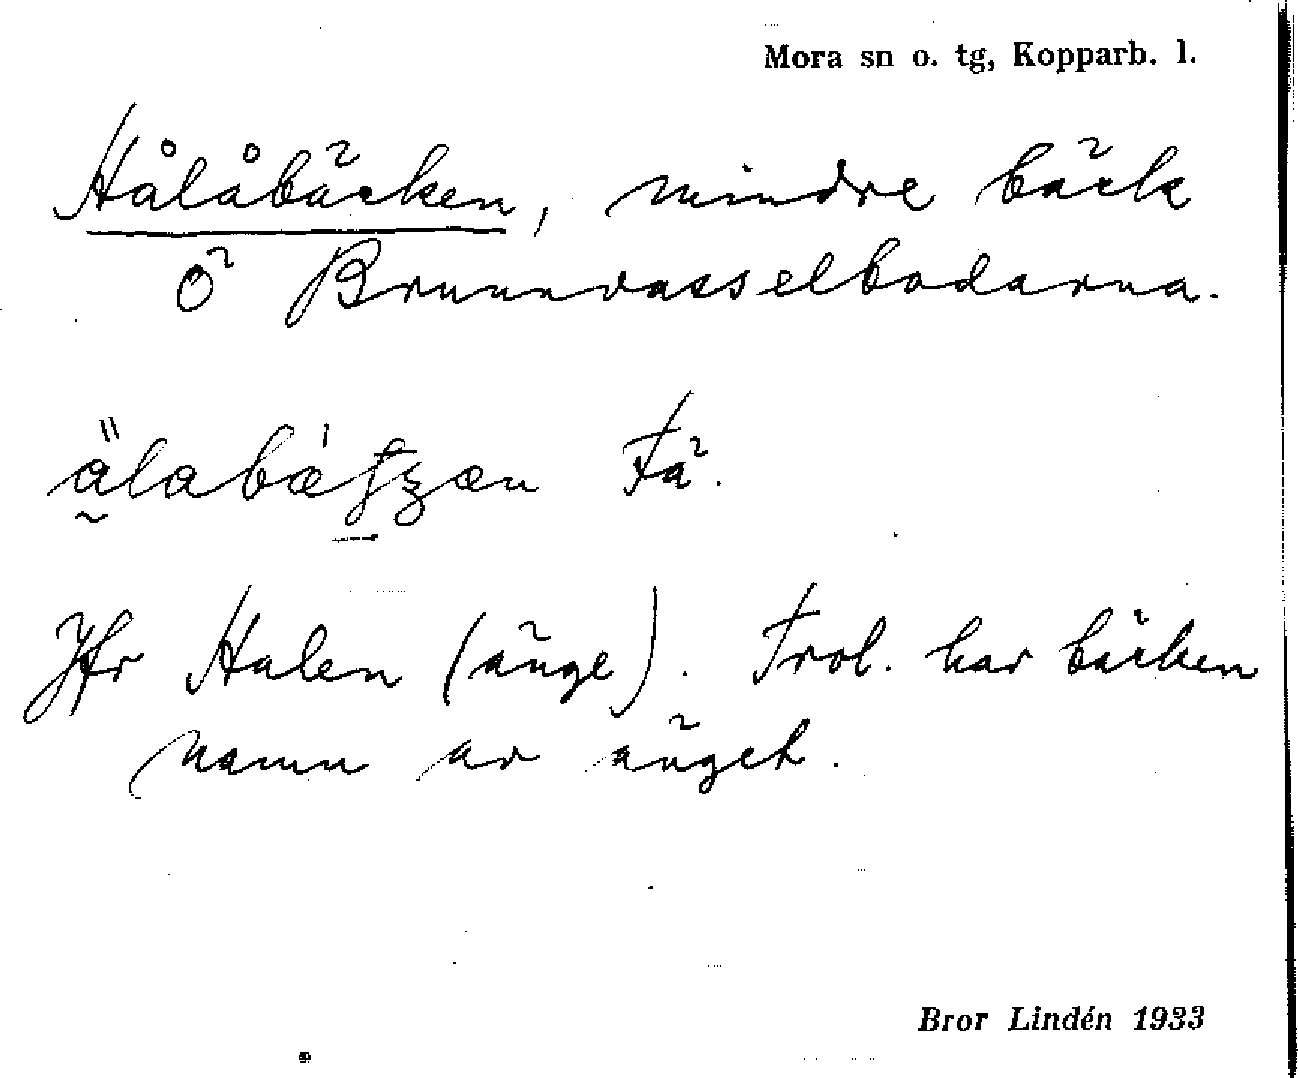 Mora sn o. tg, Kopparb. l.
Hålåbäcken, mindre bäck
Ö Brunnvasselbodarna.
Få.
Jfr Halen (änge). Trol. har bäcken
namn av änget.
Bror Lindén 1933